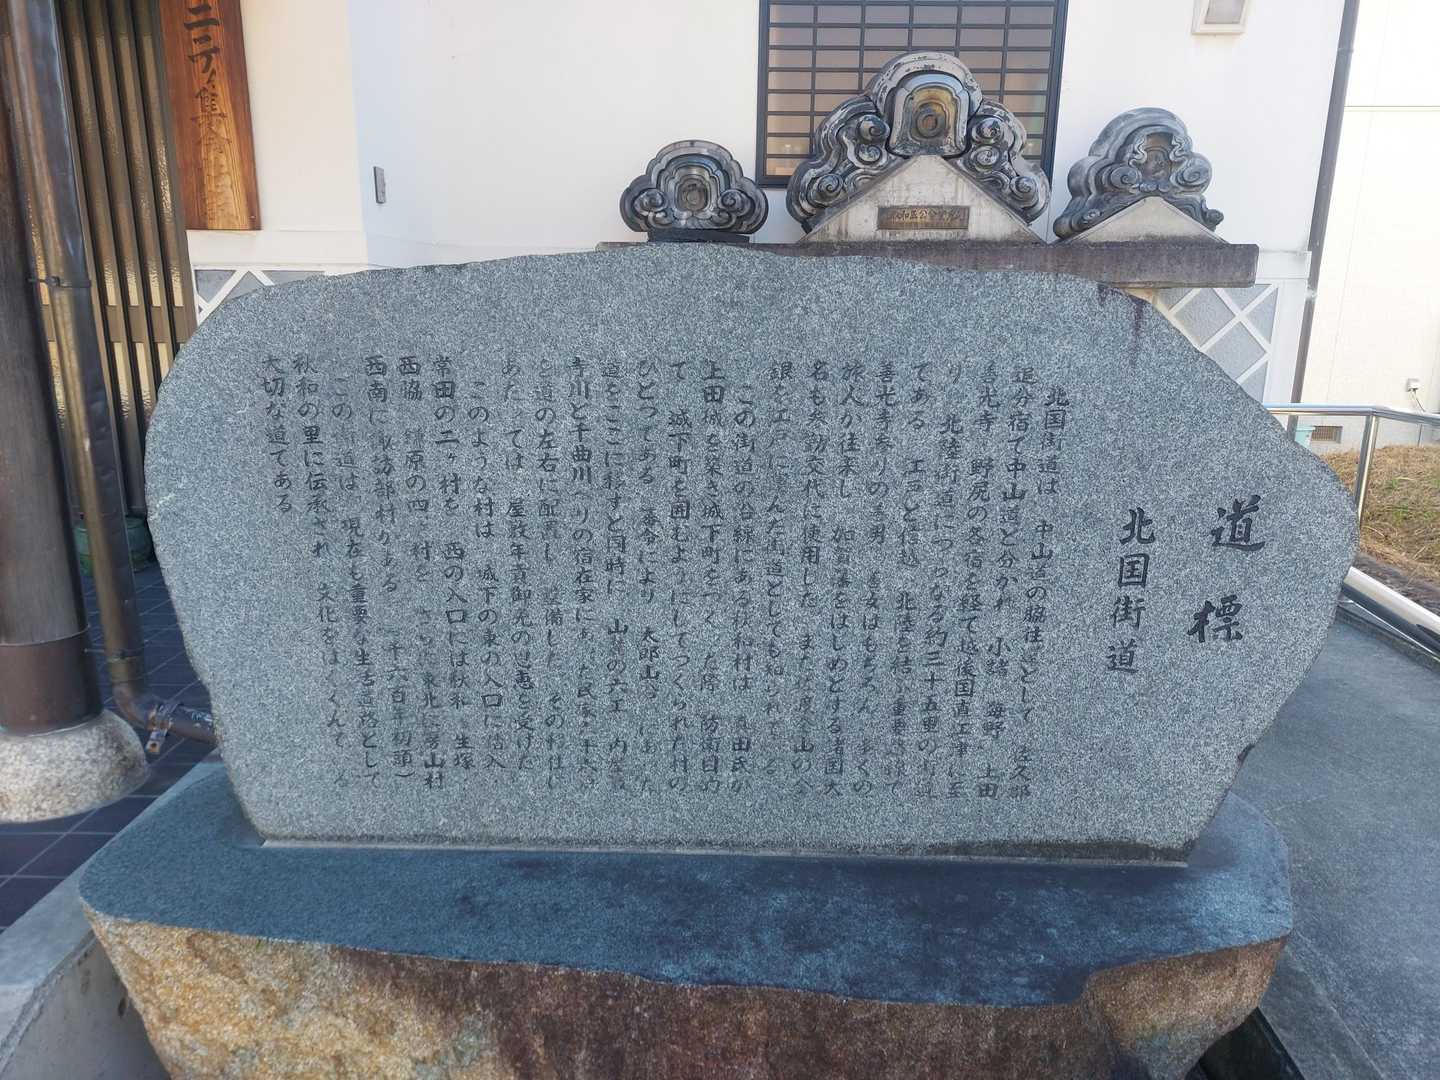 道標
北国街道
北国街道は 中山道の脇往還として 佐久郡
追分宿で中山道と分かれ 小諸 海野 上田
善光寺 野尻の各宿を経て越後国直江津に至
り 北陸街道につらなる約三十五里の街道
である 江戸と信越 北陸を結ぶ重要路線で
善光寺参りの善男 善女はもちろん 多くの
旅人が往来し 加賀藩をはじめとする諸国大
名も参勤交代に使用した また佐渡金山の金
銀を江戸に運んだ街道としても知られている
この街道の沿線にある秋和村は 真田氏が
上田城を築き城下町をつくった際 防衛目的
で 城下町を囲むようにしてつくられた村の
ひとつである 藩令により 太郎山
道をここに移すと同時に
寺川と千曲川べりの宿在家にあった民家
を道の左右に配置し 整備した その村仕
あたっては 屋敷年貢御免の恩恵を受けた
このような村は 城下の東の入口に
常田の二ヶ村を 西の入口には秋和 生塚
西脇 鎌原の四ヶ村を 北に房山村
西南に諏訪部村がある 千六百年初頭)
この街道は 現在も重要な生活道路として
秋和の里に伝承され 文化をはぐくんでいる
大切な道である